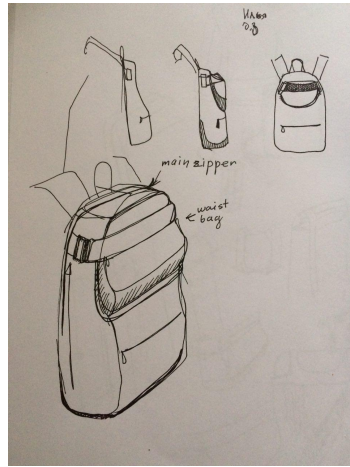 Илья
main zipper
waist
bag